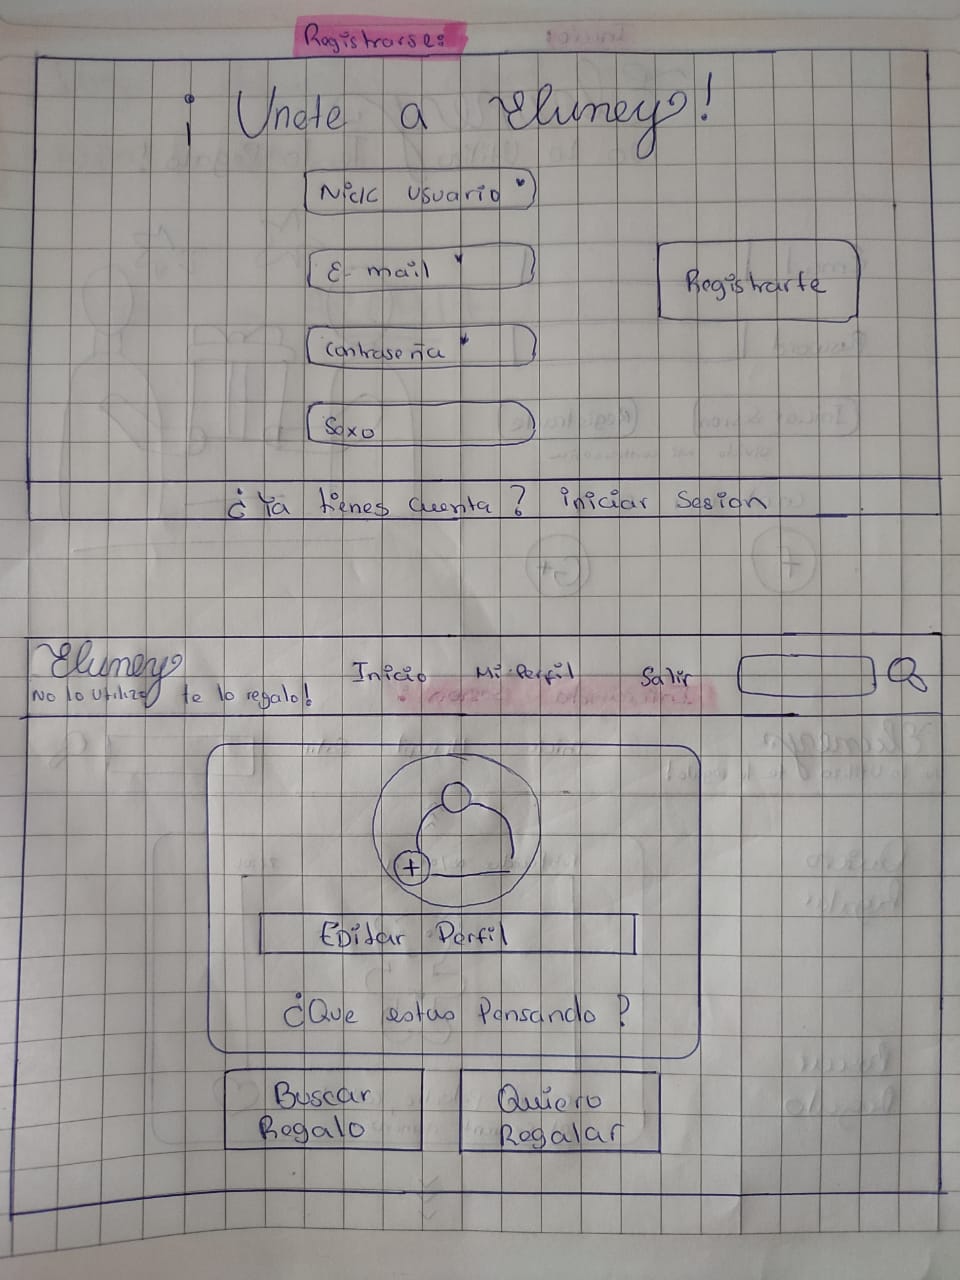 Registrarse:
¡ Unete a Eluney!
Nick usuario *
E-mail *
Contraseña *
Sexo
Registrarte
¿Ya tienes cuenta? iniciar Sesion
Eluney
No lo utilizo te lo regalo!
Inicio Mi-Perfil Salir
+
Editar Perfil
¿Que estas Pensando?
Buscar
Regalo
Quiero
Regalar